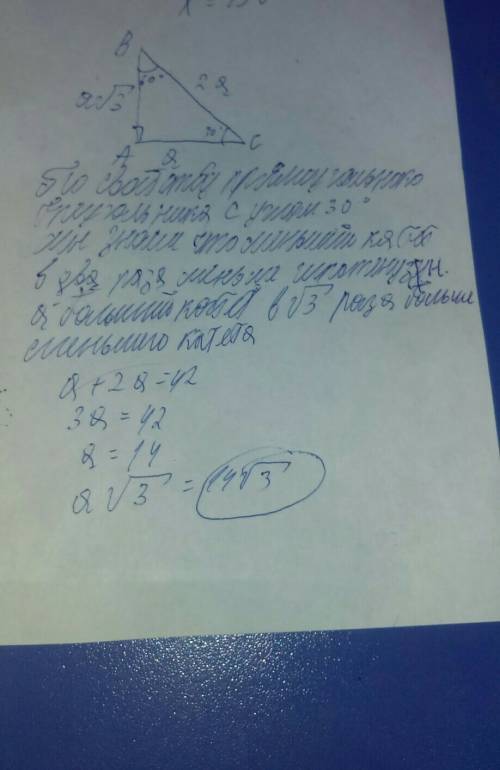 B
a√3
2a
A
a
C
По свойству прямоугольного
треугольника с углом 30°
мы знаем что меньший катет
в два раза меньше гипотенузы.
а больший катет в √3 раза больше
меньшего катета
a + 2a = 42
3a = 42
a = 14
a√3 = 14√3